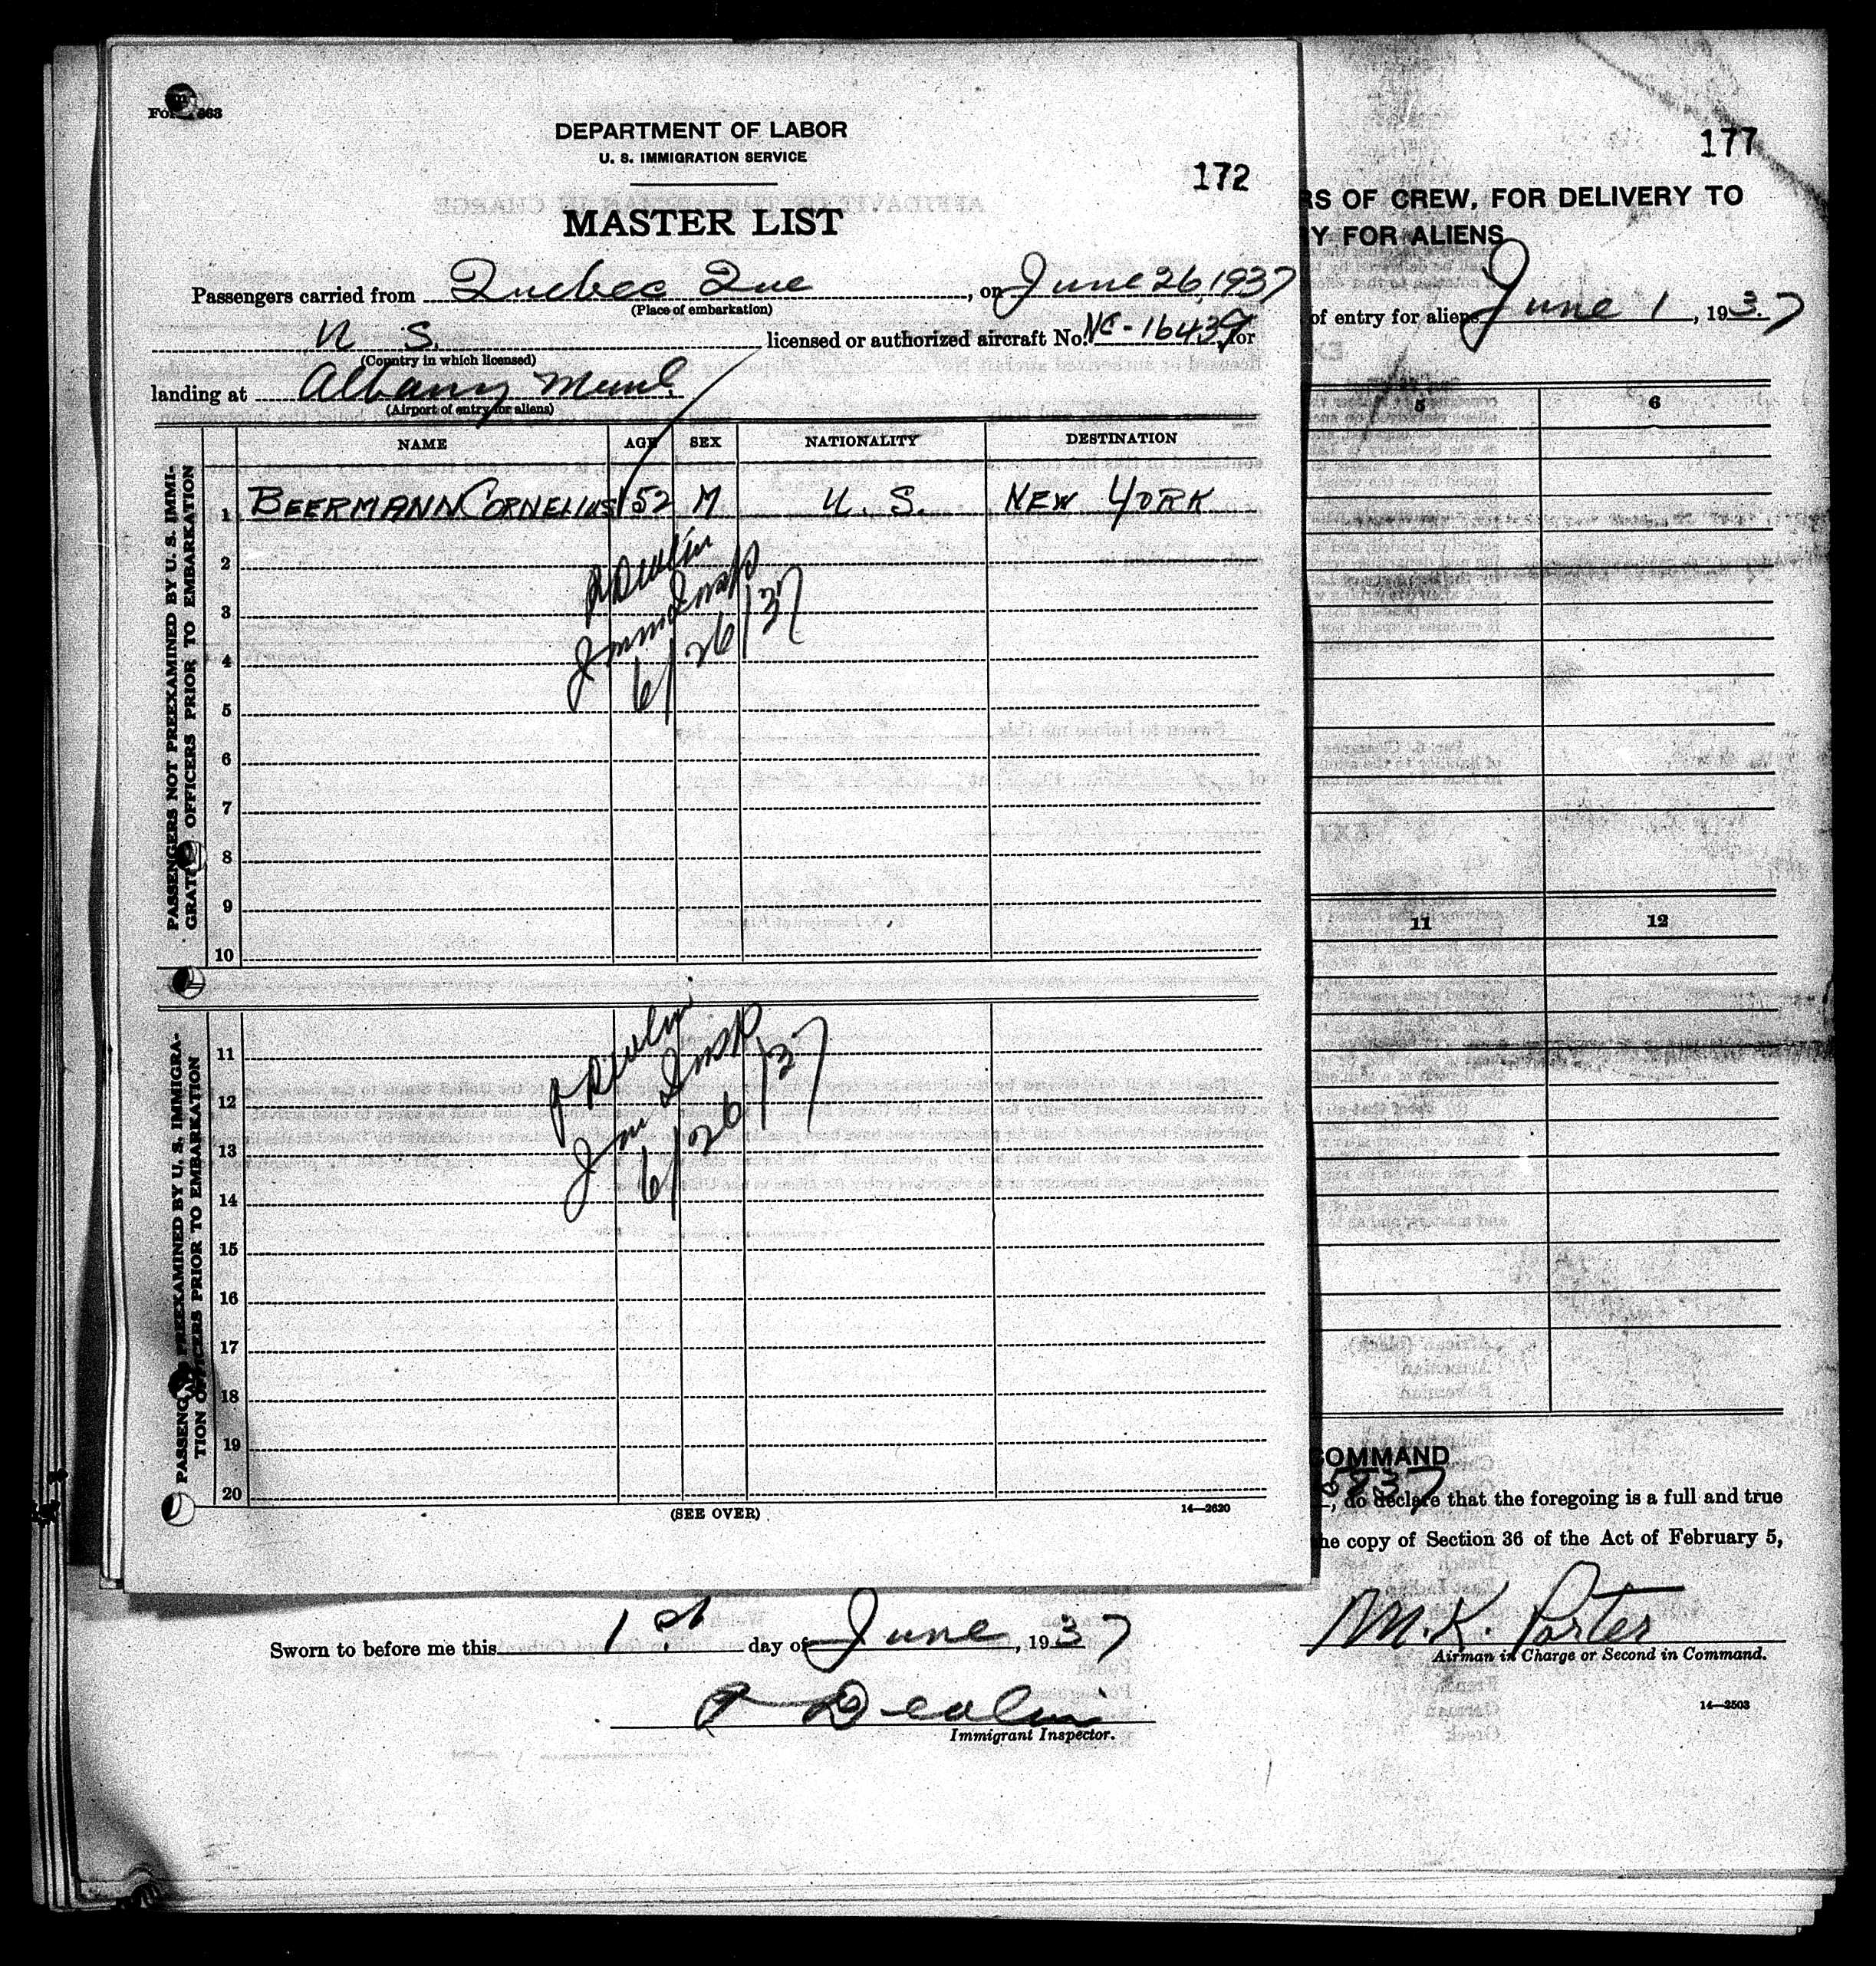 DEPARTMENT OF LABOR
U. S. IMMIGRATION SERVICE
172
MASTER LIST
Passengers carried from Quebec Que, on June 26, 1937
(Place of embarkation)
U S. licensed or authorized aircraft No. NC-16439, for
(Country in which licensed)
landing at Albany Munl.
(Airport of entry for aliens)
NAME AGE SEX NATIONALITY DESTINATION
PASSENGERS NOT PREEXAMINED BY U. S. IMMI-
OFFICERS PRIOR TO EMBARKATION
1 BEERMANN CORNELIUS 52 M U. S. NEW YORK
2
3
4
5
6
7
8
9
10
P Devlin
Imm Insp
6/26/37
PREEXAMINED BY U. S. IMMIGRA-
TION OFFICERS PRIOR TO EMBARKATION
11
12
13
14
15
16
17
18
19
20
P Devlin
Imm Insp
6/26/37
(SEE OVER)
14—2620
177
RS OF CREW, FOR DELIVERY TO
Y FOR ALIENS
of entry for aliens June 1, 1937
5 6
11 12
COMMAND
, do declare that the foregoing is a full and true
he copy of Section 36 of the Act of February 5,
M. K. Porter
Airman in Charge or Second in Command.
14—2503
Sworn to before me this 1st day of June, 1937
P Devlin
Immigrant Inspector.